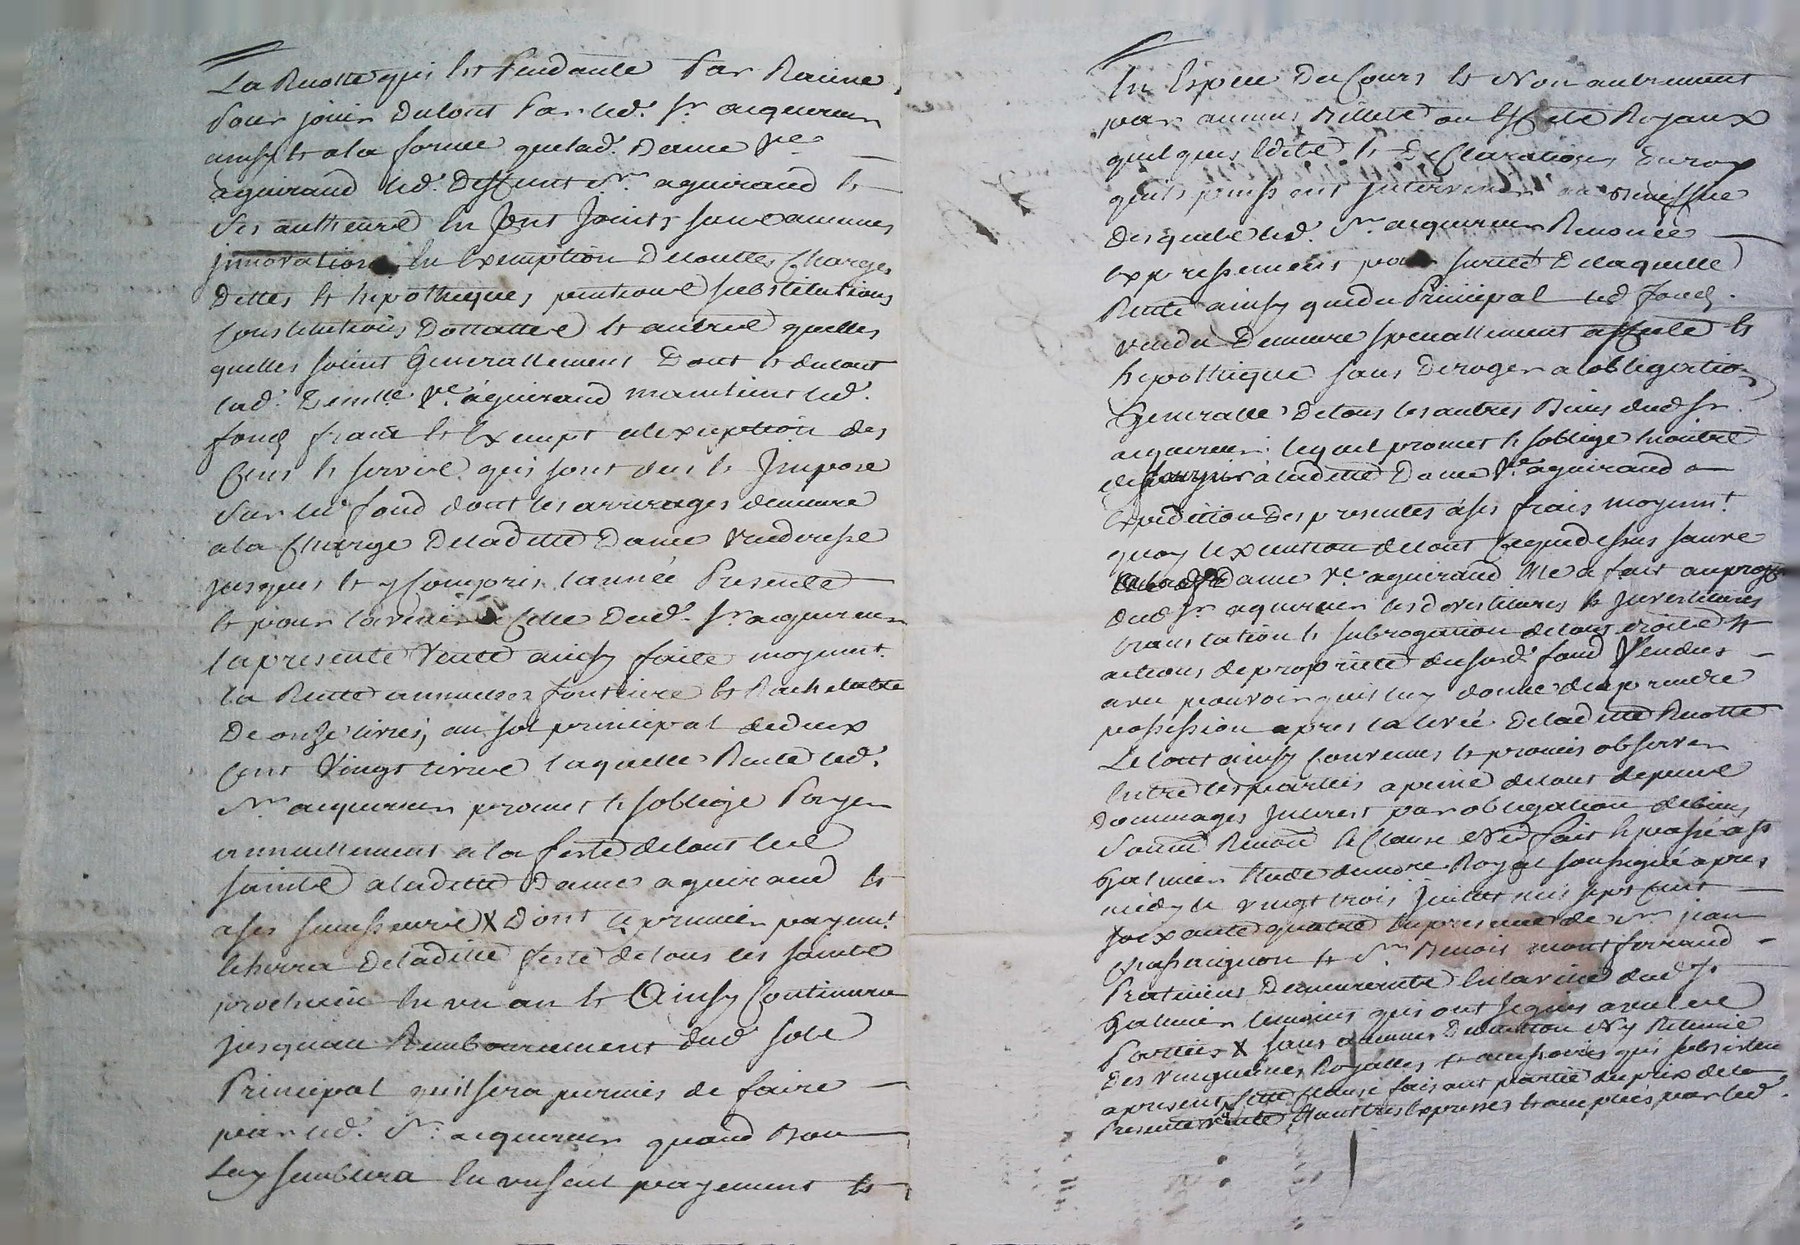 La Recolte qui est pendante Par Racine,
Pour jouir du tout Par led. Sr. acquereur
ainsy et a la forme que lad. Dame Ve.
aguiraud led. deffunt Sr. aguiraud et
Ses autheurs en sont jouits sans aucunes
innovation en Exemption de touttes Charges
Dettes et hipotheques, pentions substitutions
Constitutions Dottalles et autres quelles
quelles soient Generallement Dont et du tout
lad. Demlle. Ve. aguiraud maintient led.
fond franc et Exempt a lexception des
Cens et servis qui sont dus et Imposé
Sur led. fond dont les arrerages demeure
a la Charge De laditte Dame Venderesse
jusques et y Compris lannée Presente
et pour lavenir a Celle Dud. Sr. acquereur
la presente Vente ainsy faite moyent.
la Rente annuelle fonciere et Rachetable
De onze livres, au sol principal de deux
Cent Vingt livres laquelle Rente led.
Sr. acquereur promet et soblige Payer
annuellement a la feste de tout les
saints a laditte Dame aguiraud et
a ses successeurs X Dont le premier payemt.
Escherra De laditte feste de tous les saints
prochain en un an et Ainsy Continuera
jusquau Remboursement dud. sole
Principal quil sera permis de faire
par led. Sr. acquereur quand Bon
Luy semblera en un seul payement et
En Espece Du Cours et Non autrement
par aucuns Billets ou Effets Royaux
quelques Edits et Declarations du roy
quils puissent intervenir au Benefice
Desquels led. Sr. acquereur Renonce
Expressement pour sureté De laquelle
Rente ainsy que du Principal led. fond.
vendu Demeure speciallement affecté et
hipothequé sans Deroger a lobligation
Generalle De tous les autres Biens dud. Sr.
acquereur lequel promet et soblige en outre
de fournir a laditte Dame Ve. aguiraud
Expedition Des presentes a ses frais moyent.
quoy lexecution de tout Ce que dessus
Dame Ve. aguiraud a fait au profit
Dud. Sr. acquereur les devestitures et Investitures
translation et subrogation de tous droits et
actions de proprieté du susd. fond Vendus
avec pouvoir quil luy donne den prendre
possession apres la levée De laditte Recolte
Le tout ainsy Convenus et promis observer
Entre les parties a peine de tout depens
Dommages Interest par obligation de biens
Soumis Renoncé et Clause Et Ned fait et passé a St.
Galmier Etude du nore. Royal soussigné apres
midy le vingt trois juillet mil sept cent
soixante quatre En presence de Sr. jean
Chassaignon et Sr. Benoit montferrand
Praticiens Demeurants En la ville dud. St.
Galmier temoins qui ont signes avec les
Parties X sans aucunes Deduction Ny Retenue
Des vingtiemes Royalles et accessoires qui subsistent
a present, Cette Clause faisant partie du prix de la
Presente vente, Etant tres Expresses et acceptées par led.